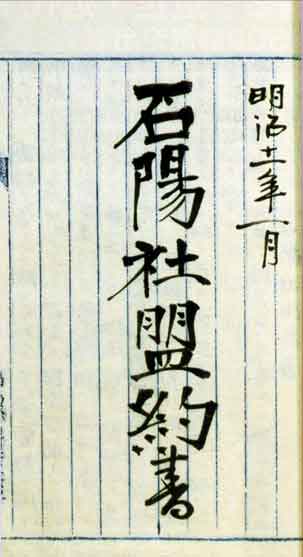 明治十一年一月
石陽社盟約書